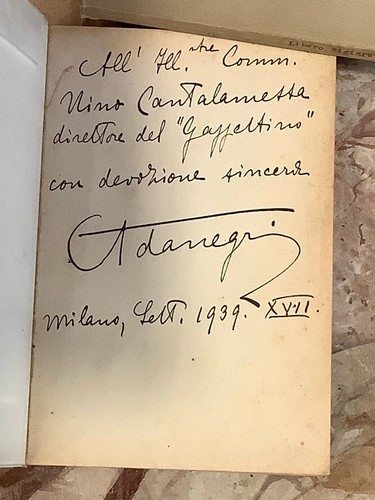 Libero Bigiare
All' Ill.tre Comm.
Nino Cantalamessa
direttore del "Gazzettino"
con devozione sincera
Ada Negri
Milano, Sett. 1939. XVII.